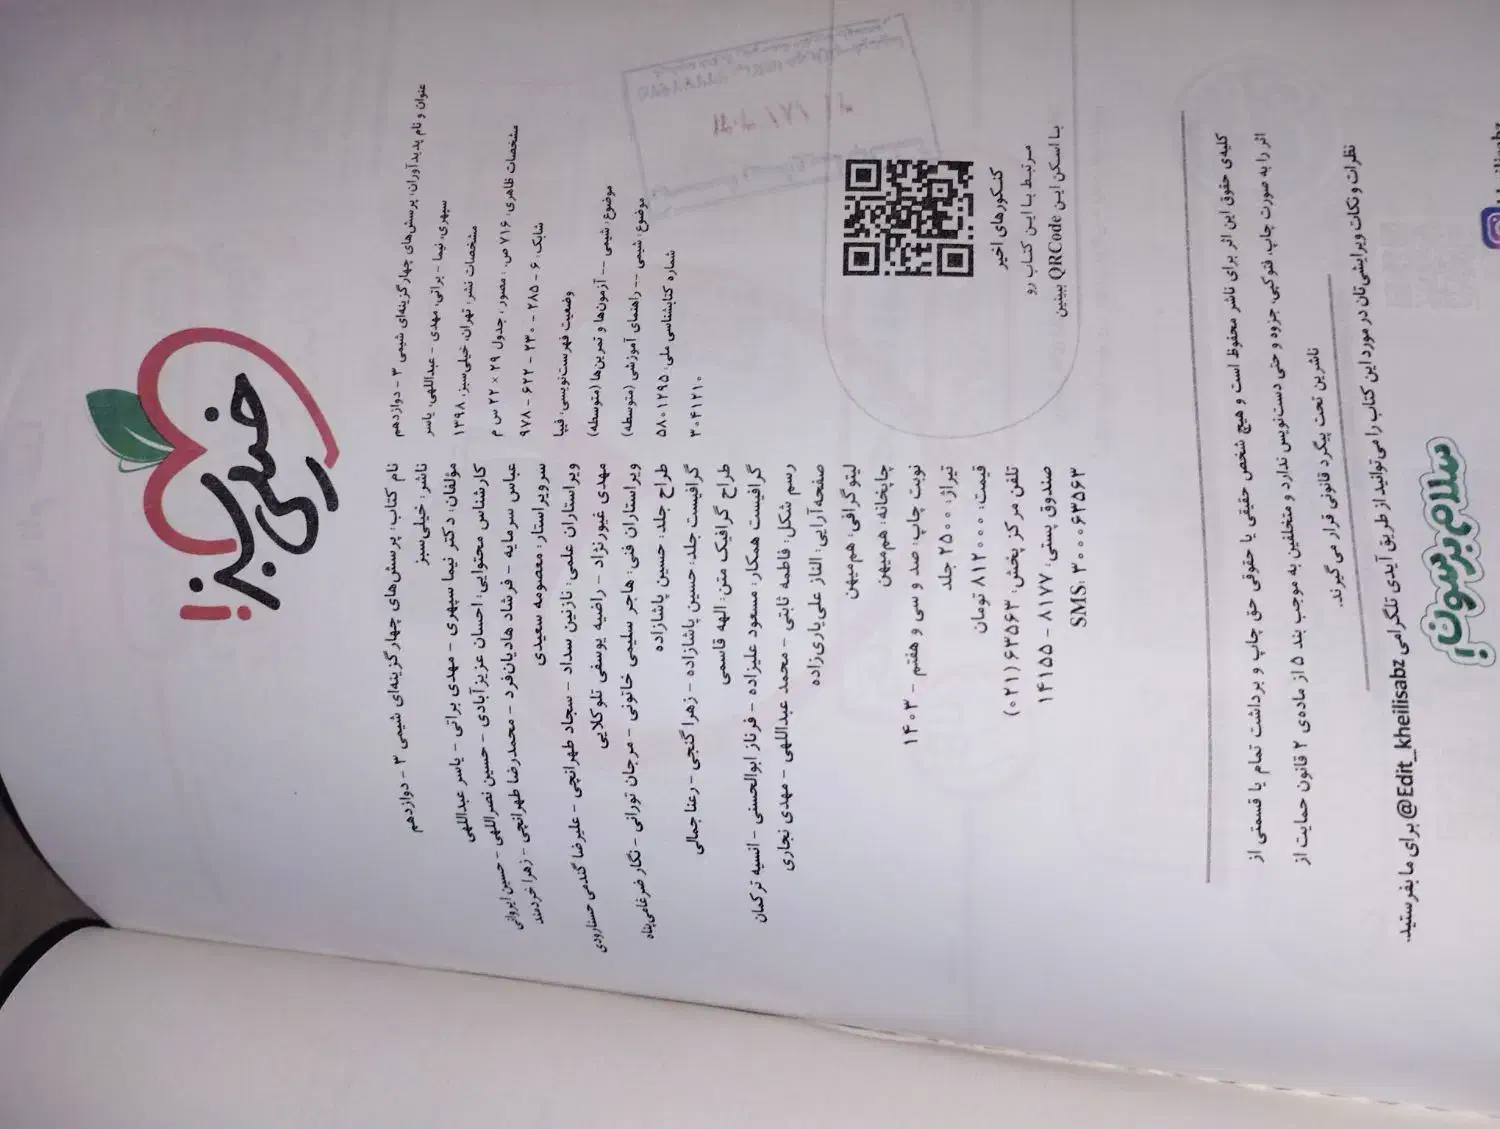 خیلی سبز!
نام کتاب: پرسش‌های چهارگزینه‌ای شیمی ۳ - دوازدهم
ناشر: خیلی‌سبز
مؤلفان: دکتر نیما سپهری - مهدی براتی - یاسر عبداللهی
کارشناس محتوایی: احسان عزیزآبادی - حسین نصراللهی - حسین ایروانی
عباس سرمایه - فرشاد هادیان‌فرد - محمدرضا طهرانچی - زهرا خردمند
سرویراستار: معصومه سعیدی
ویراستاران علمی: نازنین سداد - سجاد طهرانچی - علیرضا گندمی حسنارودی
مهدی غیورنژاد - راضیه یوسفی تلوکلایی
ویراستاران فنی: هاجر سلیمی خاتونی - مرجان تورانی - نگار ضرغامی‌پناه
طراح جلد: حسین پاشازاده
گرافیست جلد: حسین پاشازاده - زهرا گنجی - رعنا جمالی
طراح گرافیک متن: الهه قاسمی
گرافیست همکار: مسعود علیزاده - فرناز ابوالحسنی - انسیه ترکمان
رسم شکل: فاطمه ثابتی - محمد عبداللهی - مهدی نجاری
صفحه‌آرایی: الناز علی‌یاری‌زاده
لیتوگرافی: هم‌میهن
چاپخانه: هم‌میهن
نوبت چاپ: صد و سی و هفتم - ۱۴۰۳
تیراژ: ۲۵۰۰ جلد
قیمت: ۸۱۲۰۰۰ تومان
تلفن مرکز پخش: ۶۳۵۶۳ (۰۲۱)
صندوق پستی: ۸۱۷۷ - ۱۴۱۵۵
SMS: ۳۰۰۰۶۳۵۶۳
عنوان و نام پدیدآوران: پرسش‌های چهارگزینه‌ای شیمی ۳ - دوازدهم
سپهری، نیما - براتی، مهدی - عبداللهی، یاسر
مشخصات نشر: تهران، خیلی‌سبز، ۱۳۹۸
مشخصات ظاهری: ۷۱۶ ص.، مصور، جدول ۲۹ × ۲۲ س م
شابک: ۶ - ۲۸۵ - ۲۳۰ - ۶۲۲ - ۹۷۸
وضعیت فهرست‌نویسی: فیپا
موضوع: شیمی -- آزمون‌ها و تمرین‌ها (متوسطه)
موضوع: شیمی -- راهنمای آموزشی (متوسطه)
شماره کتابشناسی ملی: ۵۸۰۱۲۹۵
۳۰۴۱۲۱۰
کنکورهای اخیر
مرتبط با این کتاب رو
با اسکن این QRCode ببینین
کلیه‌ی حقوق این اثر برای ناشر محفوظ است و هیچ شخص حقیقی یا حقوقی حق چاپ و برداشت تمام یا قسمتی از
اثر را به صورت چاپ، فتوکپی، جزوه و حتی دست‌نویس ندارد و متخلفین به موجب بند ۵ از ماده‌ی ۲ قانون حمایت از
ناشرین تحت پیگرد قانونی قرار می‌گیرند.
نظرات و نکات ویرایشی‌تان در مورد این کتاب را می‌توانید از طریق آیدی تلگرامی @Edit_kheilisabz برای ما بفرستید.
سلام برسون!